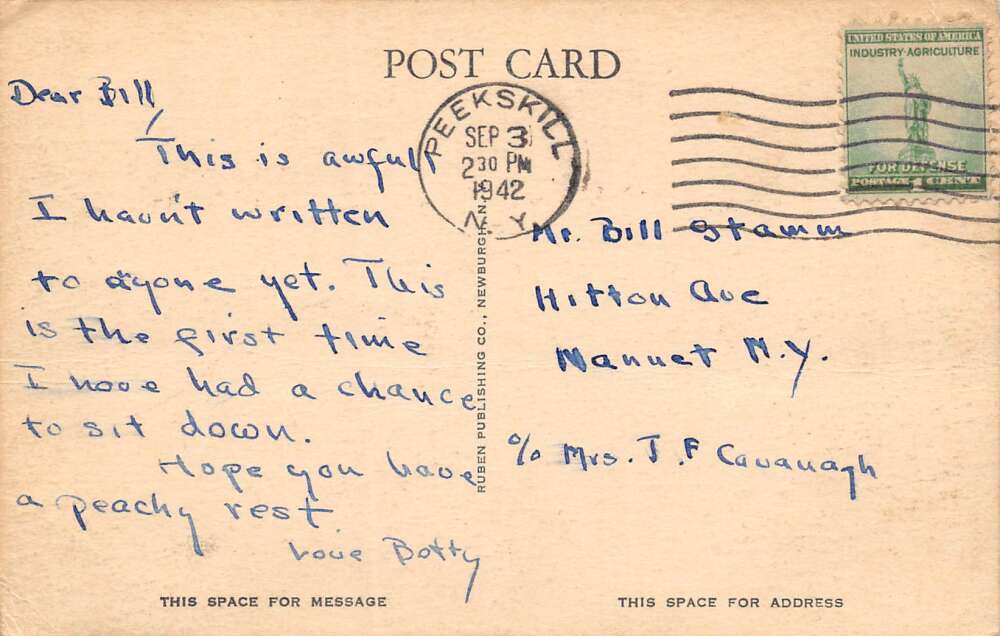 POST CARD
UNITED STATES OF AMERICA
INDUSTRY·AGRICULTURE
FOR DEFENSE
POSTAGE 1 CENT
PEEKSKILL
SEP 3
2 30 PM
1942
N. Y.
Dear Bill,
This is awful
I havn't written
to ayone yet. This
is the first time
I have had a chance
to sit down.
Hope you have
a peachy rest
Love Betty
RUBEN PUBLISHING CO., NEWBURGH, N.Y.
Mr. Bill Stamm
Hitton Ave
Nanuet N.Y.
c/o Mrs. J. F Cavanagh
THIS SPACE FOR MESSAGE
THIS SPACE FOR ADDRESS